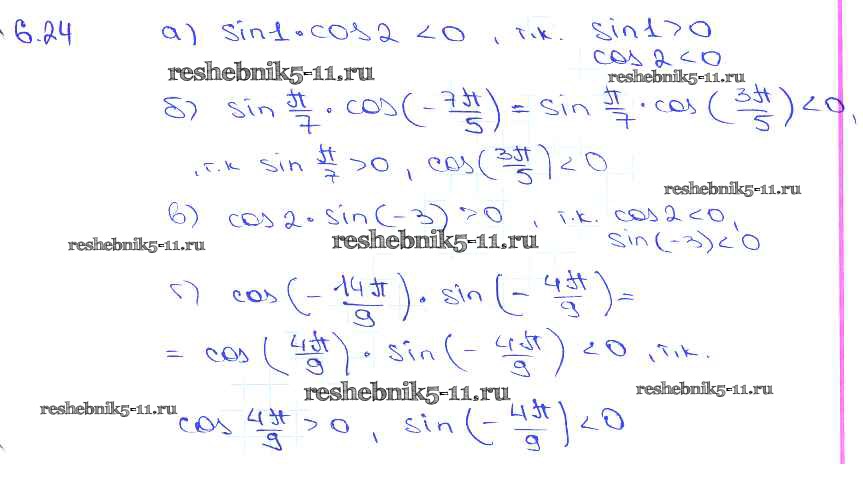 6.24 а) sin1·cos2 <0, т.к. sin1>0
cos2<0
reshebnik5-11.ru reshebnik5-11.ru
б) sin π/7 · cos(-7π/5) = sin π/7 · cos(3π/5) <0,
, т.к sin π/7 >0, cos(3π/5) <0
reshebnik5-11.ru
в) cos2·sin(-3) >0, т.к. cos2<0,
reshebnik5-11.ru reshebnik5-11.ru sin(-3)<0
г) cos(-14π/9)·sin(-4π/9)=
= cos(4π/9)·sin(-4π/9) <0, т.к.
reshebnik5-11.ru reshebnik5-11.ru
reshebnik5-11.ru
cos 4π/9 >0, sin(-4π/9) <0